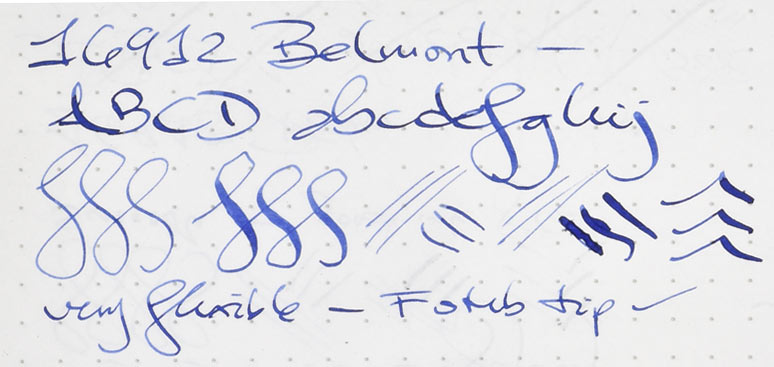 16912 Belmont —
ABCD abcdefghij
very flexible — F to bb tip